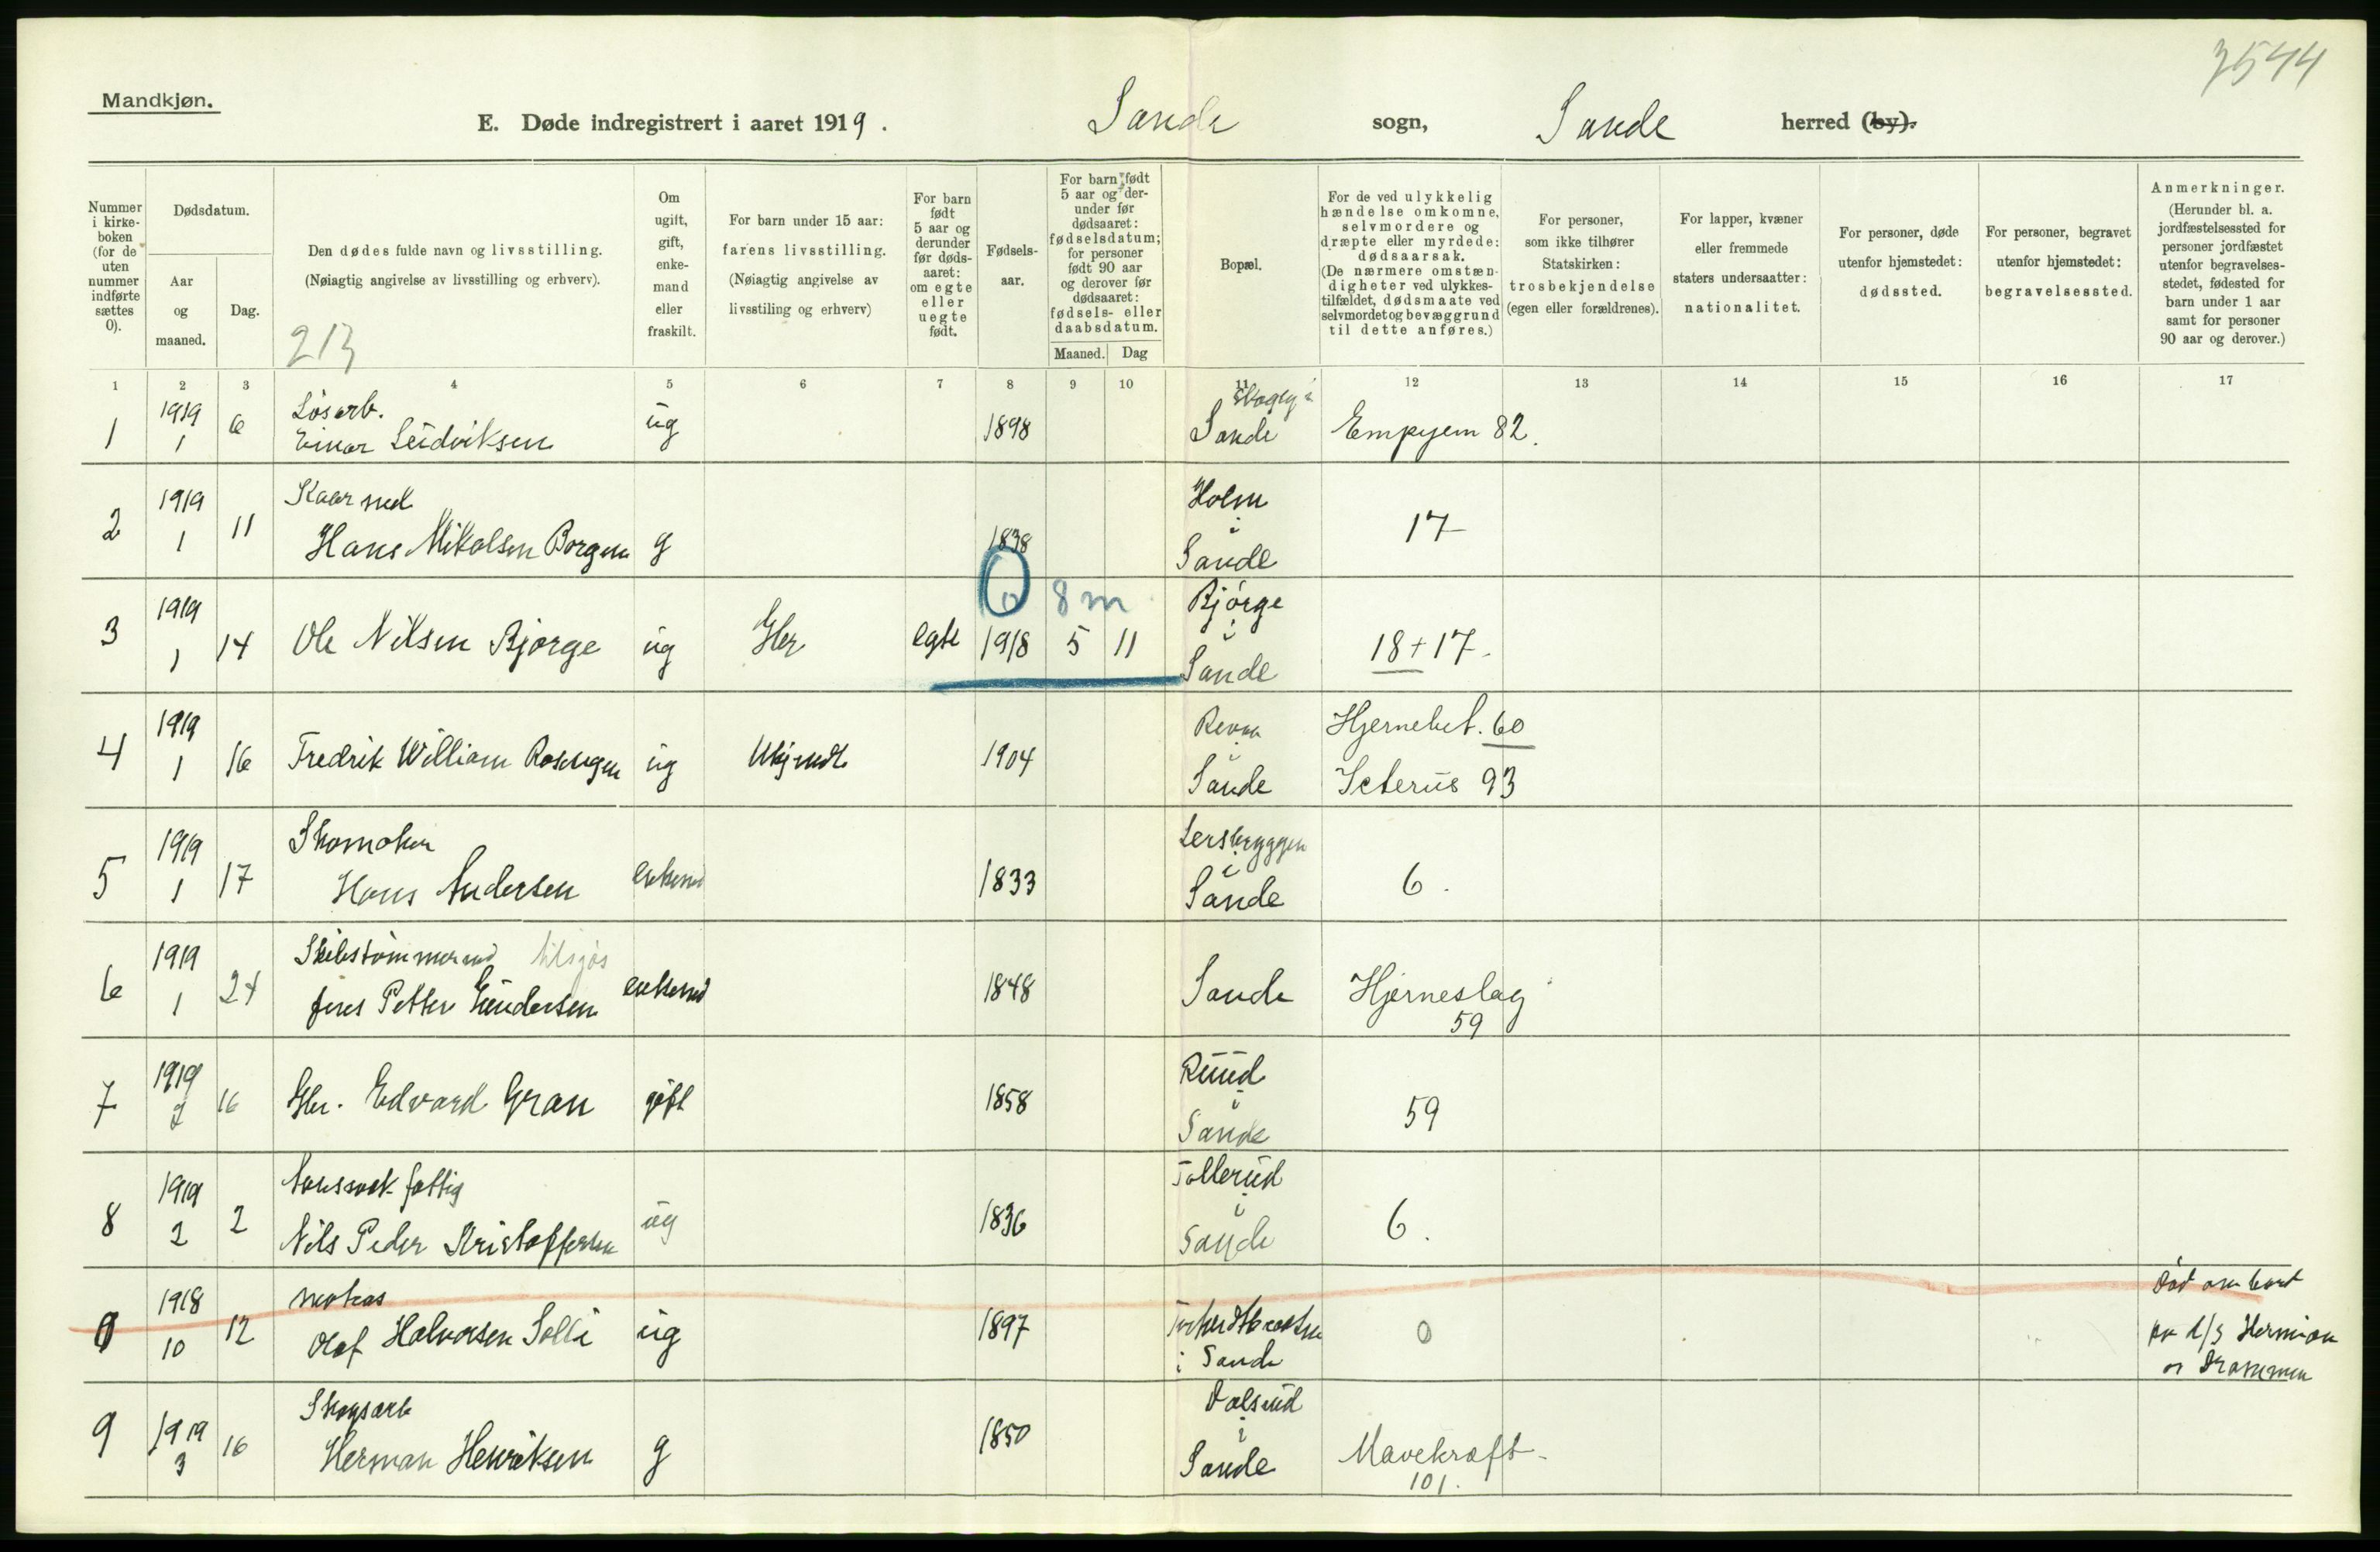 3544
Mandkjøn.
E. Døde indregistrert i aaret 1919. Sande sogn, Sande herred (by).
Nummer i kirkeboken (for de uten nummer indførte sættes 0).
Dødsdatum.
Aar og maaned.
Dag.
Den dødes fulde navn og livsstilling.
(Nøiagtig angivelse av livsstilling og erhverv).
213
Om ugift, gift, enkemand eller fraskilt.
For barn under 15 aar:
farens livsstilling.
(Nøiagtig angivelse av livsstiling og erhverv)
For barn født 5 aar og derunder før dødsaaret: om egte eller uegte født.
Fødselsaar.
For barn født 5 aar og derunder før dødsaaret: fødselsdatum; for personer født 90 aar og derover før dødsaaret: fødsels- eller daabsdatum.
Maaned. Dag
Bopæl.
For de ved ulykkelig hændelse omkomne, selvmordere og dræpte eller myrdede: dødsaarsak.
(De nærmere omstændigheter ved ulykkestilfældet, dødsmaate ved selvmordet og bevæggrund til dette anføres.)
For personer, som ikke tilhører Statskirken: trosbekjendelse (egen eller forældrenes).
For lapper, kvæner eller fremmede staters undersaatter: nationalitet.
For personer, døde utenfor hjemstedet: dødssted.
For personer, begravet utenfor hjemstedet: begravelsessted.
Anmerkninger.
(Herunder bl. a. jordfæstelsessted for personer jordfæstet utenfor begravelsesstedet, fødested for barn under 1 aar samt for personer 90 aar og derover.)
1 2 3 4 5 6 7 8 9 10 11 12 13 14 15 16 17
1 1919 1 6 Løsarb.
Einar Ludviksen ug 1898 Sande Empyem 82.
2 1919 1 11 Kaarmd
Hans Mikalsen Borgen g 1838 Holm i Sande 17
0 8 m
3 1919 1 14 Ole Nilsen Bjørge ug Gbr egte 1918 5 11 Bjørge i Sande 18 + 17.
4 1919 1 16 Fredrik William ug Ukjendt 1904 Revaa i Sande Hjernebet. 60
Icterus 93
5 1919 1 17 Skomaker
Hans Andersen enkemd 1833 Lersbryggen i Sande 6.
6 1919 1 24 Skibstømmermd
Jens Petter Gundersen enkemd 1848 Sande Hjerneslag
59
7 1919 2 16 Gbr. Edvard Gran gift 1858 Ruud i Sande 59
8 1919 2 2 fattig
Nils Peder Kristoffersen ug 1836 Tollerud i Sande 6.
0 1918 10 12 matros
Olaf Halvorsen Solli ug 1897 i Sande 0 Død om bord
paa d/s Hermion
av Drammen
9 1919 3 16 Skogsarb
Herman Henriksen g 1850 Dalsrud i Sande Mavekræft
101.